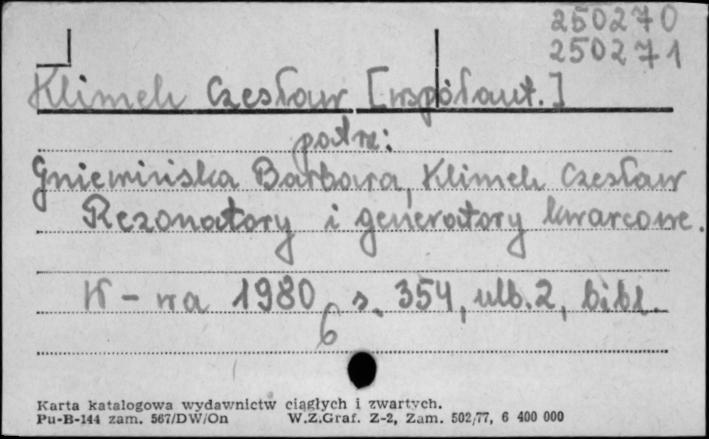 250270
250271
Klimek Czesław [współaut.]
patrz:
Gniewińska Barbara, Klimek Czesław
Rezonatory i generatory kwarcowe.
W-wa 1980, s. 354, nlb. 2, bibl.
6
Karta katalogowa wydawnictw ciągłych i zwartych.
Pu-B-144 zam. 567/DW/On W.Z.Graf. Z-2, Zam. 502/77, 6 400 000